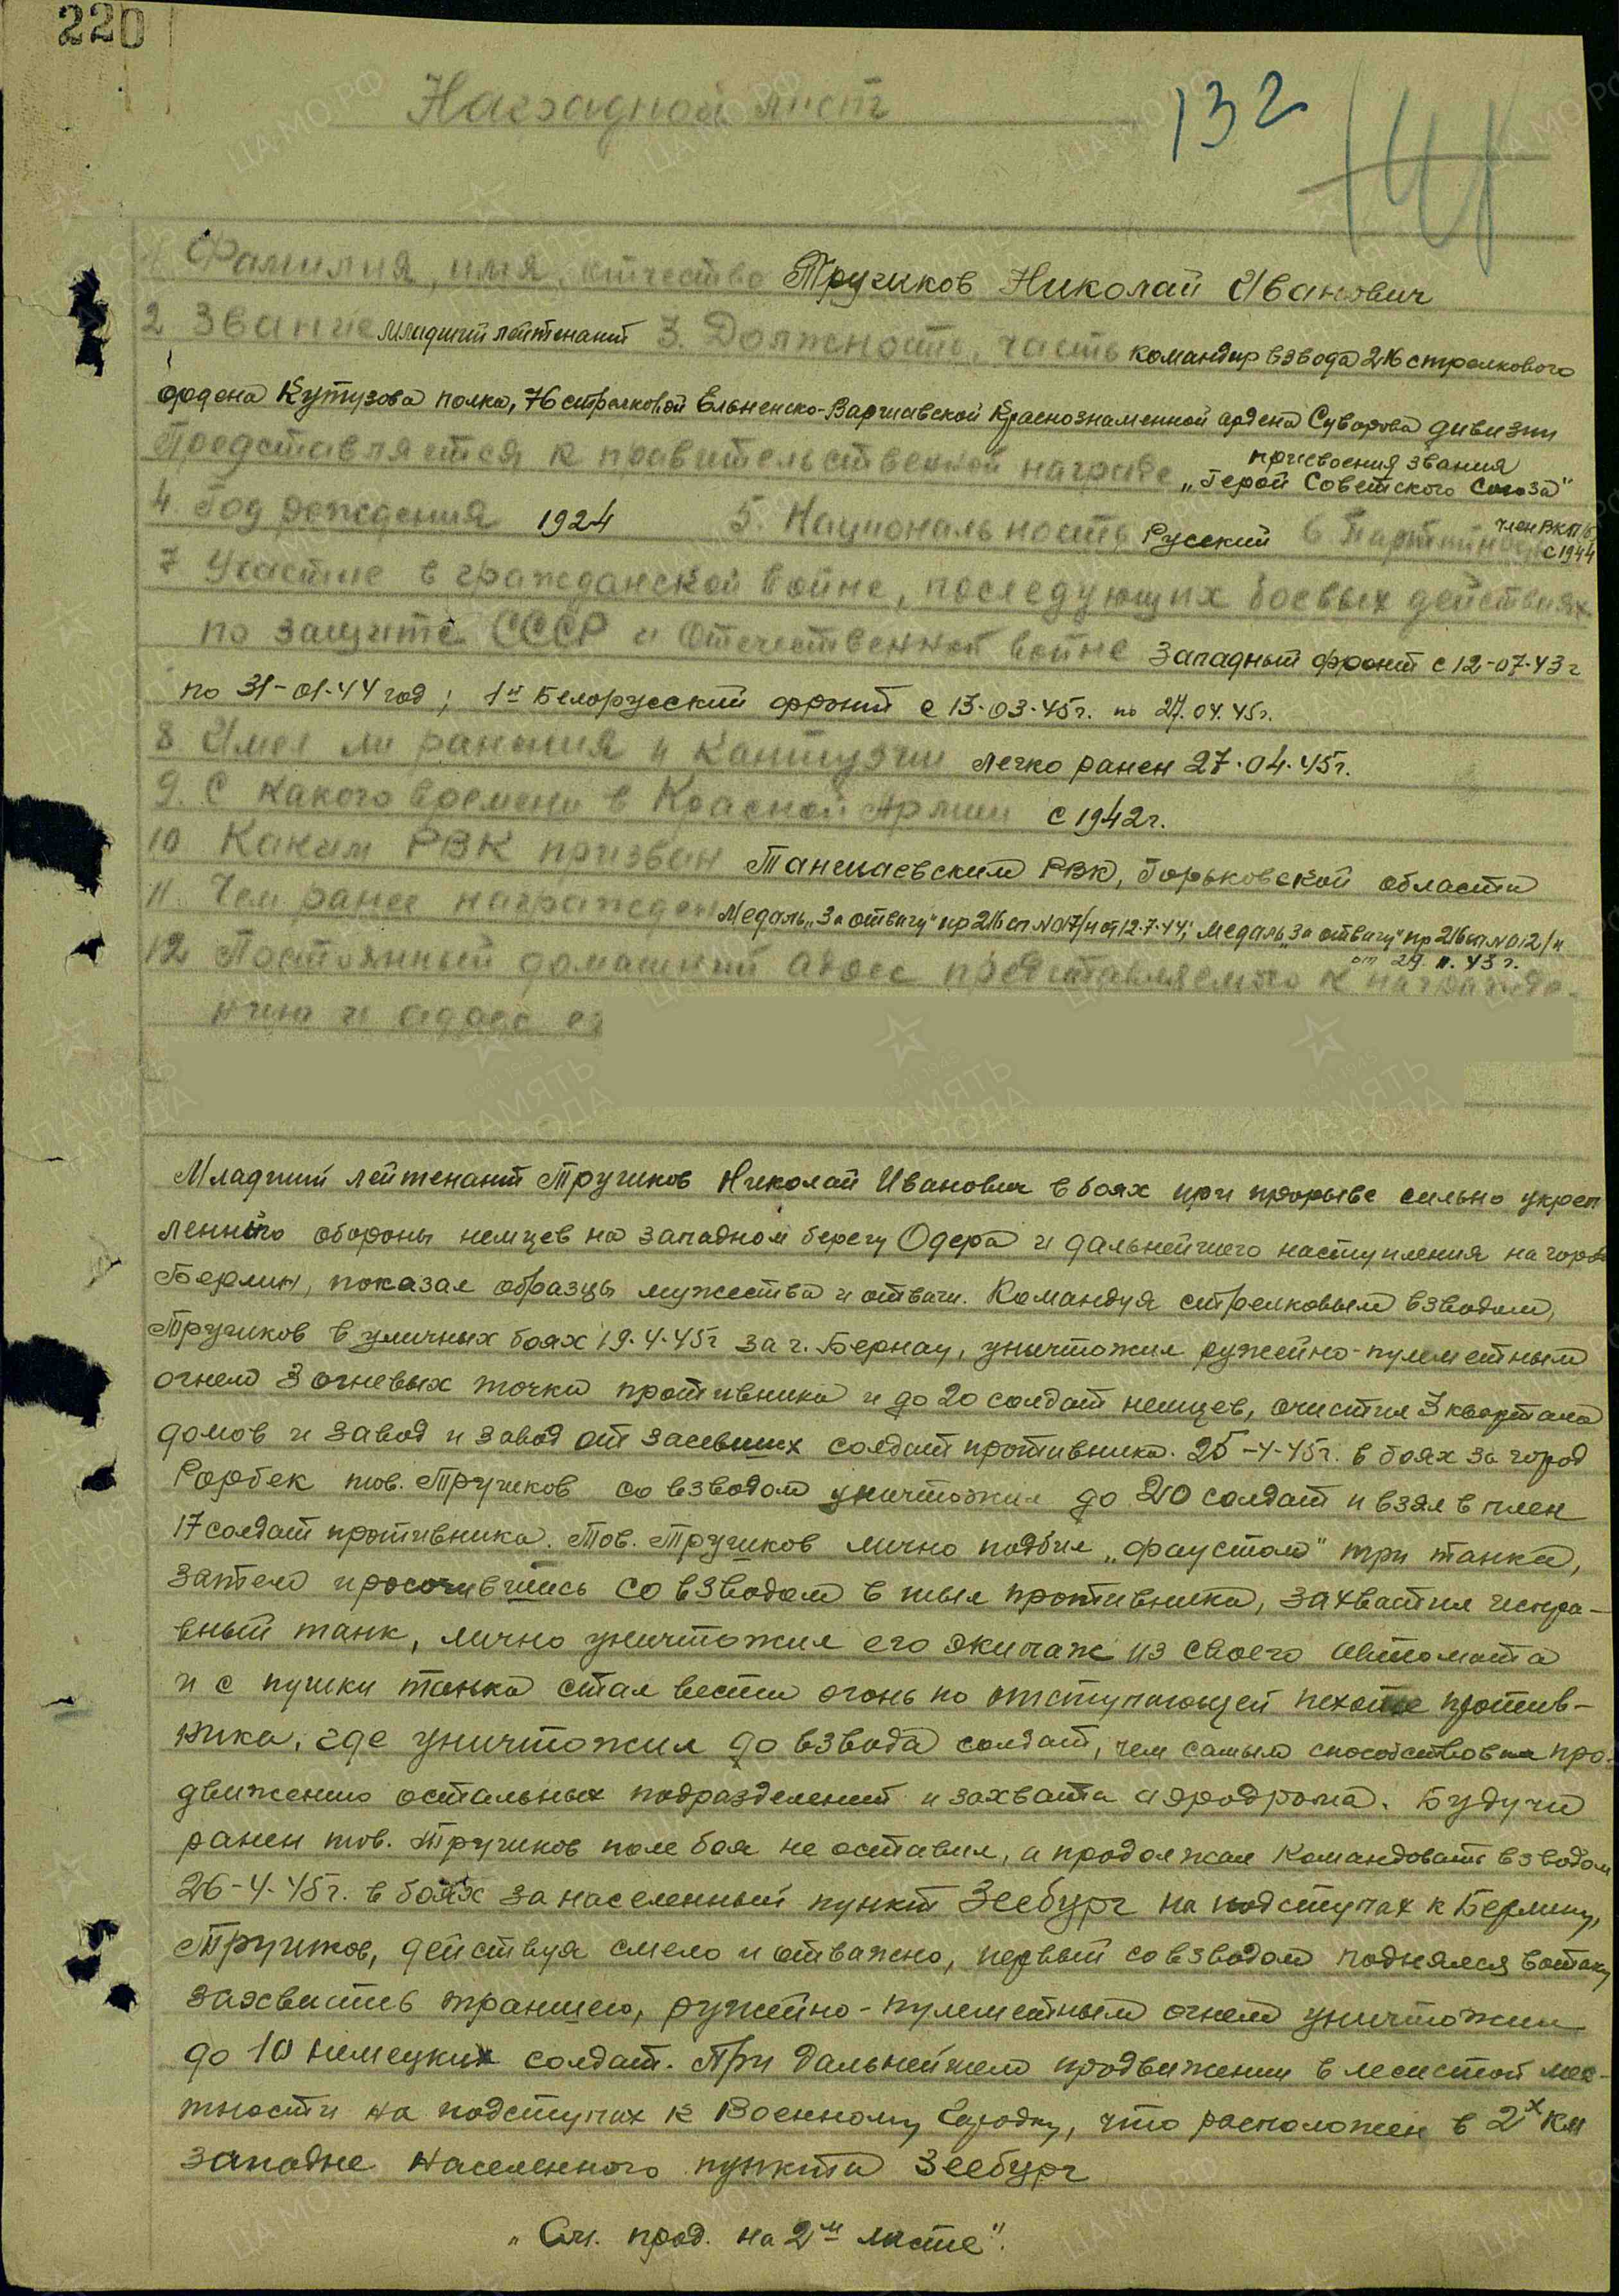 220
Наградной лист
132
1 Фамилия, имя, отчество Тручиков Николай Иванович
2 Звание младший лейтенант 3. Должность, часть командир взвода 216 стрелкового
ордена Кутузова полка, 76 стрелковой Ельненско-Варшавской Краснознаменной ордена Суворова дивизии
Представляется к правительственной награде присвоения звания
„Герой Советского Союза"
4. Год рождения 1924 5. Национальность Русский 6. Партийность член ВКП(б)
с 1944
7 Участие в гражданской войне, последующих боевых действиях
по защите СССР и отечественной войне Западный фронт с 12-07-43 г
по 31-01-44 год; 1й Белорусский фронт с 13.03.45г. по 27.04.45г.
8 Имел ли ранения и контузии легко ранен 27.04.45г.
9. С какого времени в Красной Армии с 1942г.
10 Каким РВК призван Таншаевским РВК, Горьковской области
11. Чем ранее награжден Медаль „За отвагу" пр 216 сп №017/н от 12.7.44; медаль „За отвагу" пр 216 сп №012/н
от 29.11.43г.
12 Постоянный домашний адрес представляемого к награжде-
нию и адрес
Младший лейтенант Тручиков Николай Иванович в боях при прорыве сильно укреп
ленного обороны немцев на западном берегу Одера и дальнейшего наступления на город
Берлин, показал образцы мужества и отваги. Командуя стрелковым взводом,
Тручиков в уличных боях 19.4.45г за г. Бернау, уничтожил ружейно-пулеметным
огнем 3 огневых точки противника и до 20 солдат немцев, очистил 3 квартала
домов и завод и завод от засевших солдат противника. 25-4-45г. в боях за город
Рорбек тов. Тручиков со взводом уничтожил до 20 солдат и взял в плен
17 солдат противника. Тов. Тручиков лично подбил „фаустом" три танка,
затем просочившись со взводом в тыл противника, захватил испра-
вный танк, лично уничтожил его экипаж из своего автомата
и с пушки танка стал вести огонь по отступающей пехоте против-
ника, где уничтожил до взвода солдат, чем самым способствовал про-
движению остальных подразделений и захвата аэродрома. Будучи
ранен тов. Тручиков поле боя не оставил, а продолжал командовать взводом
26-4-45г. в боях за населенный пункт Зеебург на подступах к Берлину,
Тручиков, действуя смело и отважно, первый со взводом поднялся в атаку
захватив траншею, ружейно-пулеметным огнем уничтожил
до 10 немецких солдат. При дальнейшем продвижении в лесистой мес-
тности на подступах к Военному Городку, что расположен в 2х км
западне населенного пункта Зеебург
„См. прод. на 2м листе".